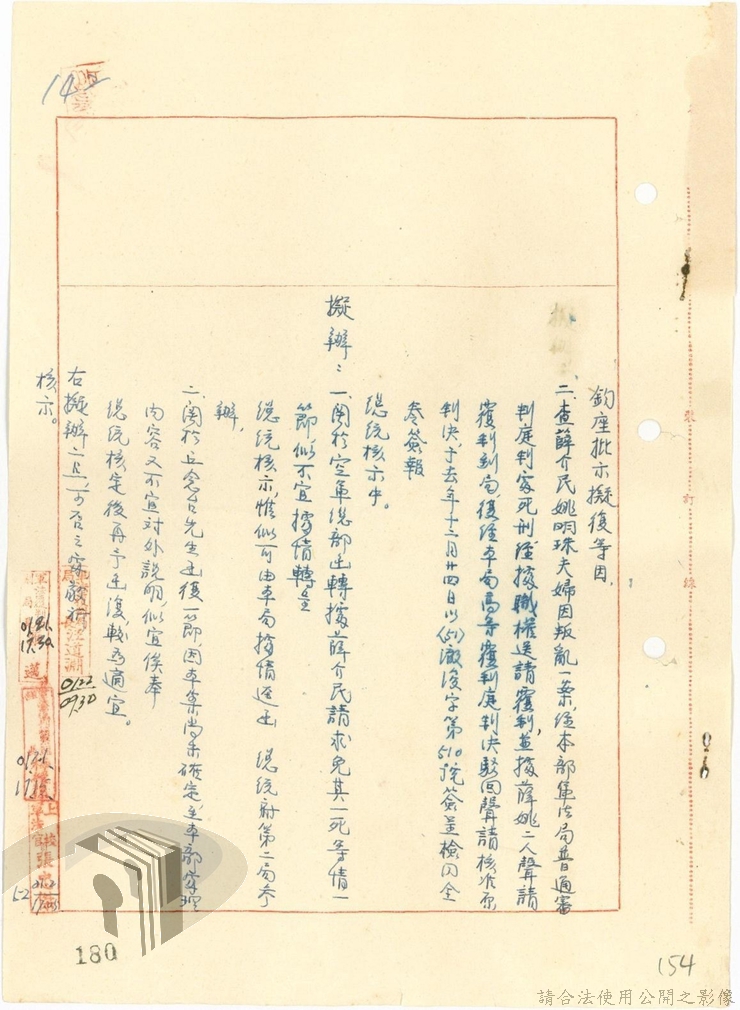 鈞座批示擬復等因。
二、查薛介民姚明珠夫婦因叛亂一案，經本部軍法局普通審
判庭判處死刑經按職權送請覆判，並據薛姚二人聲請
覆判到局，復經本局高等覆判庭判決駁回聲請核准原
判決，于去年十二月廿四日以(51)
字第510號簽呈檢同全
卷簽報
總統核示中。
擬辦：一、關於空軍總部函轉據薛介民請求免其一死等情一
節，似不宜據情轉呈
總統核示，惟似可由本局據情逕函 總統府第二局參
辦，
二、關於丘念台先生函復一節，因本案尚未確定，至本部審理
內容又不宜對外說明，似宜俟奉
總統核定後再予函復，較為適宜。
右擬辦二點，可否之處敬祈
核示。
0122
0930
上校
軍法官
張
52
180
154
裝
訂
線
請合法使用公開之影像